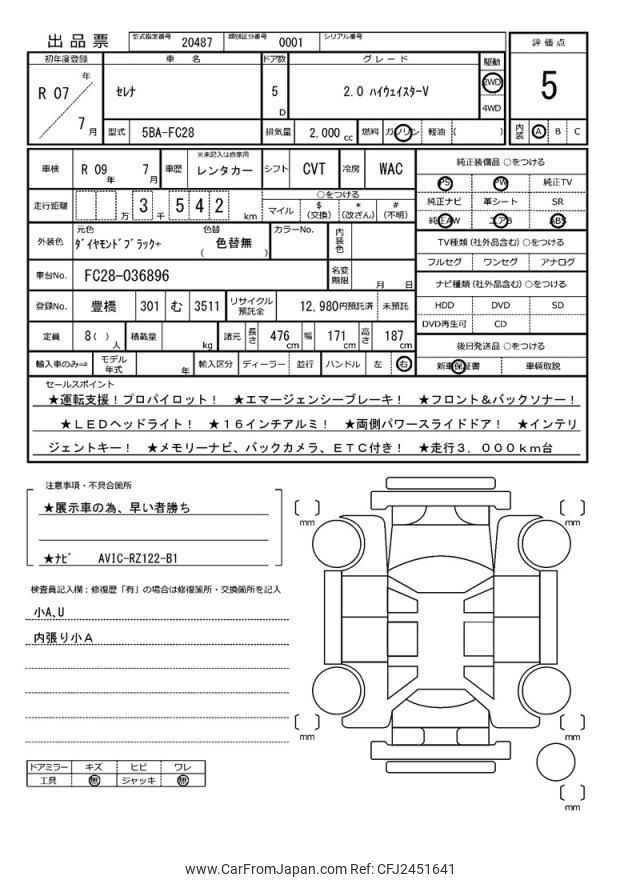 出品票
型式指定番号 20487 類別区分番号 0001 シリアル番号
評価点
5
内装 A B C
初年度登録 車名 ドア数 グレード 駆動
R 07 年 7 月 セレナ 5 D 2.0 ハイウェイスターV 2WD 4WD
型式 5BA-FC28 排気量 2,000 cc 燃料 ガソリン 軽油 ( )
車検 R 09 年 7 月 車歴 ※未記入は自家用 レンタカー シフト CVT 冷房 WAC
走行距離 万 3 千 5 4 2 km
○をつける
マイル $ (交換) * (改ざん) # (不明)
外装色 元色 ﾀﾞｲﾔﾓﾝﾄﾞﾌﾞﾗｯｸ+ 色替 ( 色替無 ) カラーNo. 内装色
車台No. FC28-036896 名変期限 月 日
登録No. 豊橋 301 む 3511 リサイクル預託金 12,980円預託済 未預託
定員 8( ) 人 積載量 kg 諸元 長さ 476 cm 幅 171 cm 高さ 187 cm
輸入車のみ⇒ モデル年式 年 輸入区分 ディーラー 並行 ハンドル 左 右
純正装備品 ○をつける
PS PW 純正TV
純正ナビ 革シート SR
純正AW エアB ABS
TV種類 (社外品含む) ○をつける
フルセグ ワンセグ アナログ
ナビ種類 (社外品含む) ○をつける
HDD DVD SD
DVD再生可 CD
後日発送品 ○をつける
新車保証書 車輌取説
セールスポイント
★運転支援！プロパイロット！ ★エマージェンシーブレーキ！ ★フロント＆バックソナー！
★ＬＥＤヘッドライト！ ★１６インチアルミ！ ★両側パワースライドドア！ ★インテリ
ジェントキー！ ★メモリーナビ、バックカメラ、ＥＴＣ付き！ ★走行３．０００ｋｍ台
注意事項・不具合箇所
★展示車の為、早い者勝ち
★ﾅﾋﾞ AVIC-RZ122-B1
検査員記入欄：修復歴「有」の場合は修復箇所・交換箇所を記入
小A､U
内張り小A
ドアミラー キズ ヒビ ワレ
工具 無 ジャッキ 無
mm
mm
mm
mm
mm
www.CarFromJapan.com Ref: CFJ2451641